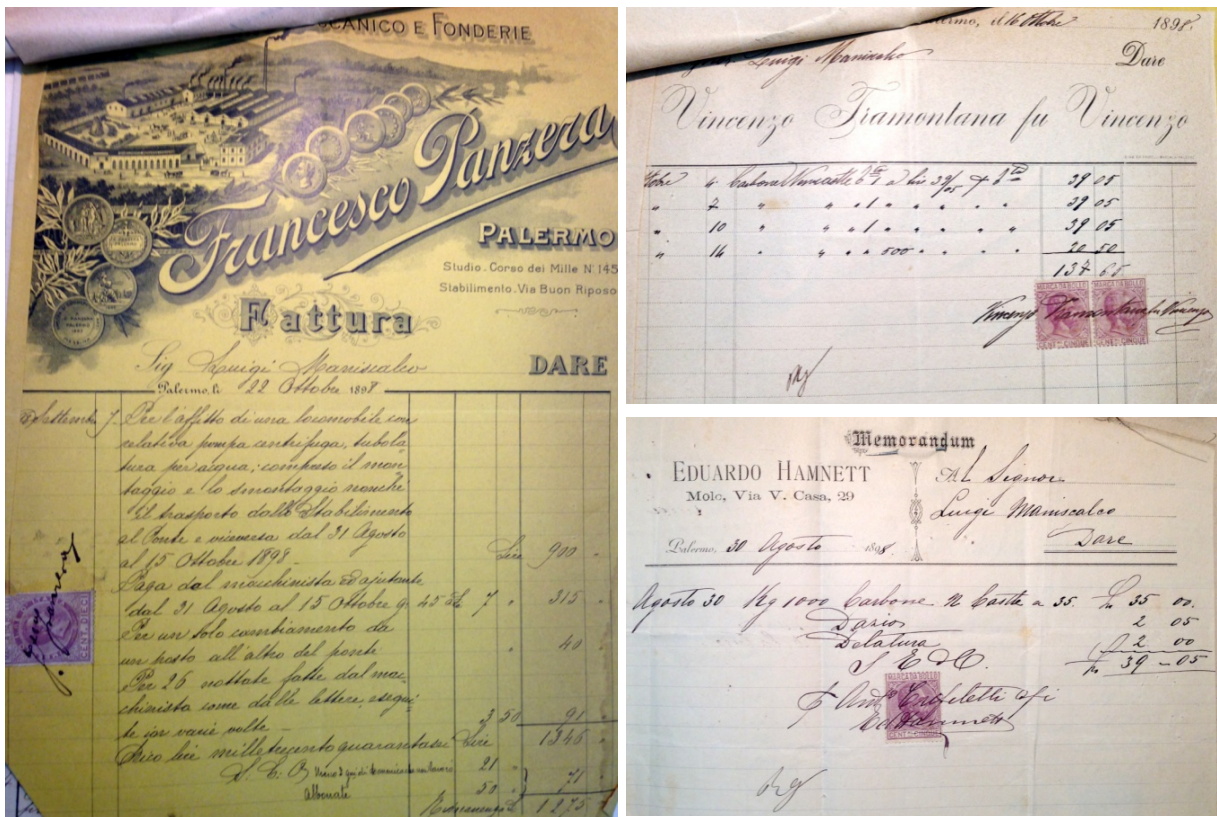 MECCANICO E FONDERIE
Francesco Panzera
PALERMO
Studio. Corso dei Mille N° 145
Stabilimento. Via Buon Riposo
Fattura
Sig Luigi Maniscalco DARE
Palermo, li 22 Ottobre 1898
Settembre 7 Per l'affitto di una locomobile con
relativa pompa centrifuga, tubola
tura per acqua; compreso il mon
taggio e lo smontaggio nonché
il trasporto dallo Stabilimento
al Ponte e viceversa dal 31 Agosto
al 15 Ottobre 1898 Lire 900 "
Paga del macchinista ed ajutante
dal 31 Agosto al 15 Ottobre g. 45 a L 7 " 315 "
Per un solo cambiamento da
un posto all'altro del ponte " 40 "
Per 26 nottate fatte dal mac
chinista come dalle lettere esegui
te in varie volte 3 50 91 "
Dico lire milletrecentoquarantasei Lire 1346 "
S. E. O. 21 "
Abbonate 50 " 71 "
1275 "
CENT. DIECI
Palermo, di 16 Ottobre 1898.
Luigi Maniscalco Dare
Vincenzo Tramontana fu Vincenzo
Ottobre 4 Carbone Newcastle 39 05
" 7 " " " 1 " " " " " 39 05
" 10 " " " 1 " " " " " 39 05
" 14 " " " 500 " " " " 20 50
137 65
MARCA DA BOLLO MARCA DA BOLLO
Vincenzo Tramontana fu Vincenzo
CENT. CINQUE CENT. CINQUE
Memorandum
EDUARDO HAMNETT
Molo, Via V. Casa, 29
Al Signor
Luigi Maniscalco
Dare
Palermo, 30 Agosto 1898
Agosto 30 Kg 1000 Carbone N Castle a 35. L. 35 00.
Dazio 2 05
Delatura 2 00
S. E. & O. L. 39 - 05
Ed Hamnett
CENT. CINQUE